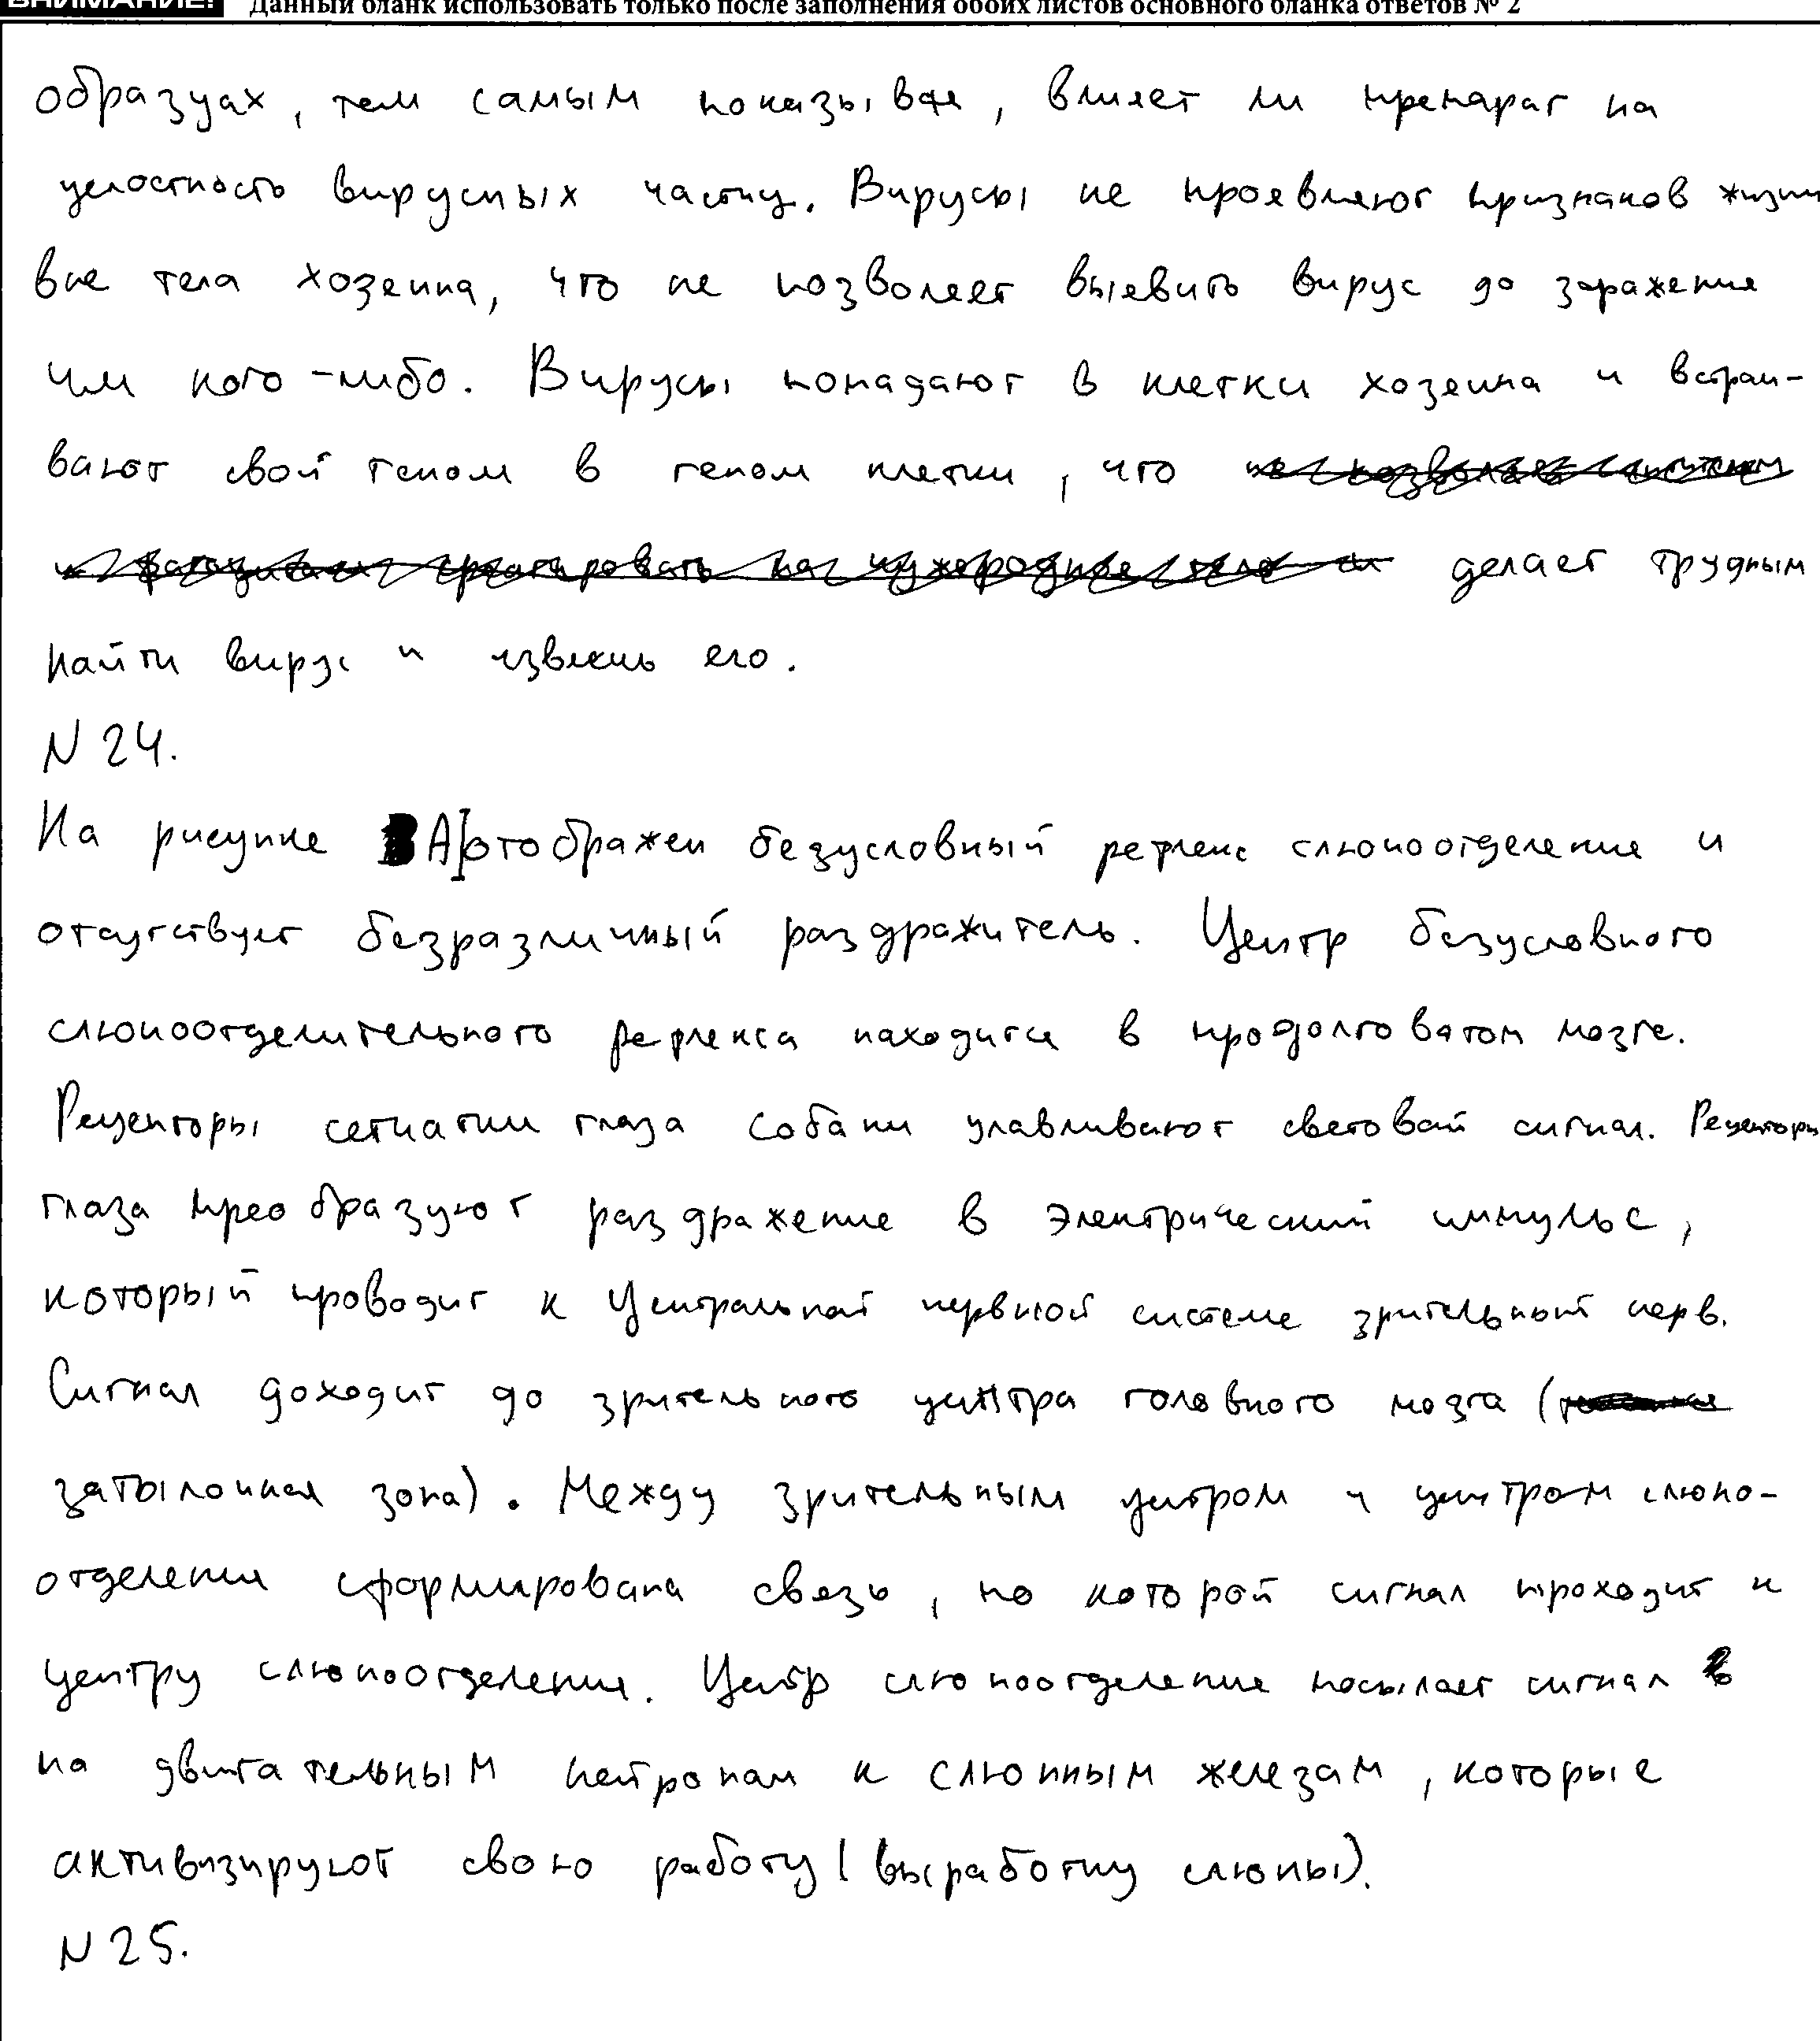 ВНИМАНИЕ! Данный бланк использовать только после заполнения обоих листов основного бланка ответов № 2
образцах, тем самым показывая, влияет ли препарат на
целостность вирусных частиц. Вирусы не проявляют признаков жизни
вне тела хозяина, что не позволяет выявить вирус до заражения
им кого-либо. Вирусы попадают в клетки хозяина и встраи-
вают свой геном в геном клетки, что
делает трудным
найти вирус и извлечь его.
N 24.
На рисунке А отображен безусловный рефлекс слюноотделения и
отсутствует безразличный раздражитель. Центр безусловного
слюноотделительного рефлекса находится в продолговатом мозге.
Рецепторы сетчатки глаза собаки улавливают световой сигнал. Рецепторы
глаза преобразуют раздражение в электрический импульс,
который проводит к центральной нервной системе зрительный нерв.
Сигнал доходит до зрительного центра головного мозга (
затылочная зона). Между зрительным центром и центром слюно-
отделения сформирована связь, по которой сигнал проходит к
центру слюноотделения. Центр слюноотделения посылает сигнал
по двигательным нейронам к слюнным железам, которые
активизируют свою работу (выработку слюны).
N 25.